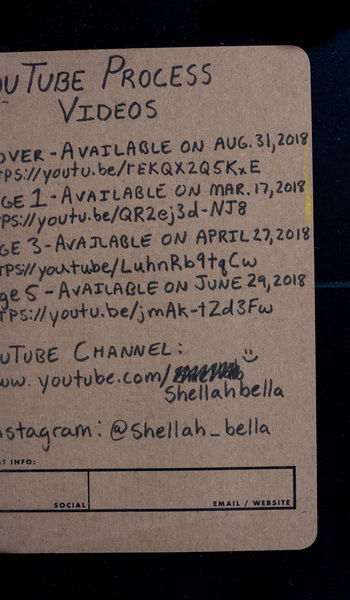 OUTUBE PROCESS
VIDEOS
OVER - AVAILABLE ON AUG. 31, 2018
TPS://youtu.be/rEKQX2Q5KxE
GE 1 - AVAILABLE ON MAR. 17, 2018
PS://youtu.be/QR2ej3d-NJ8
GE 3 - AVAILABLE ON APRIL 27, 2018
TPS//youtube/LuhnRb9tqCw
ge 5 - AVAILABLE ON JUNE 29, 2018
TPS://youtu.be/jmAk-tZd3Fw
OUTUBE CHANNEL:
ww.youtube.com/
Shellahbella
nstagram: @shellah_bella
ST INFO:
SOCIAL
EMAIL / WEBSITE